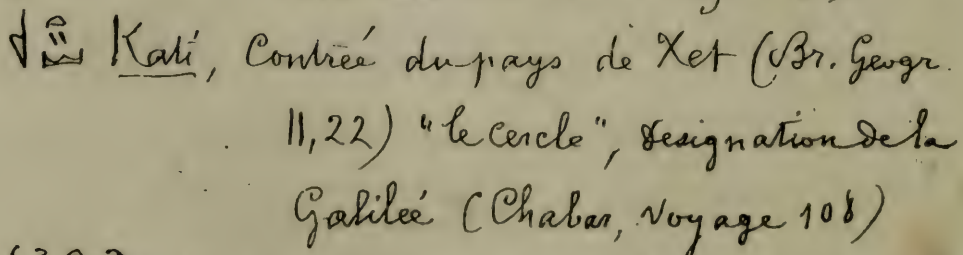 Kati, Contrée du pays de Xet (Br. Geogr.
11,22) "le cercle", designation de la
Galileé (Chabas, Voyage 108)